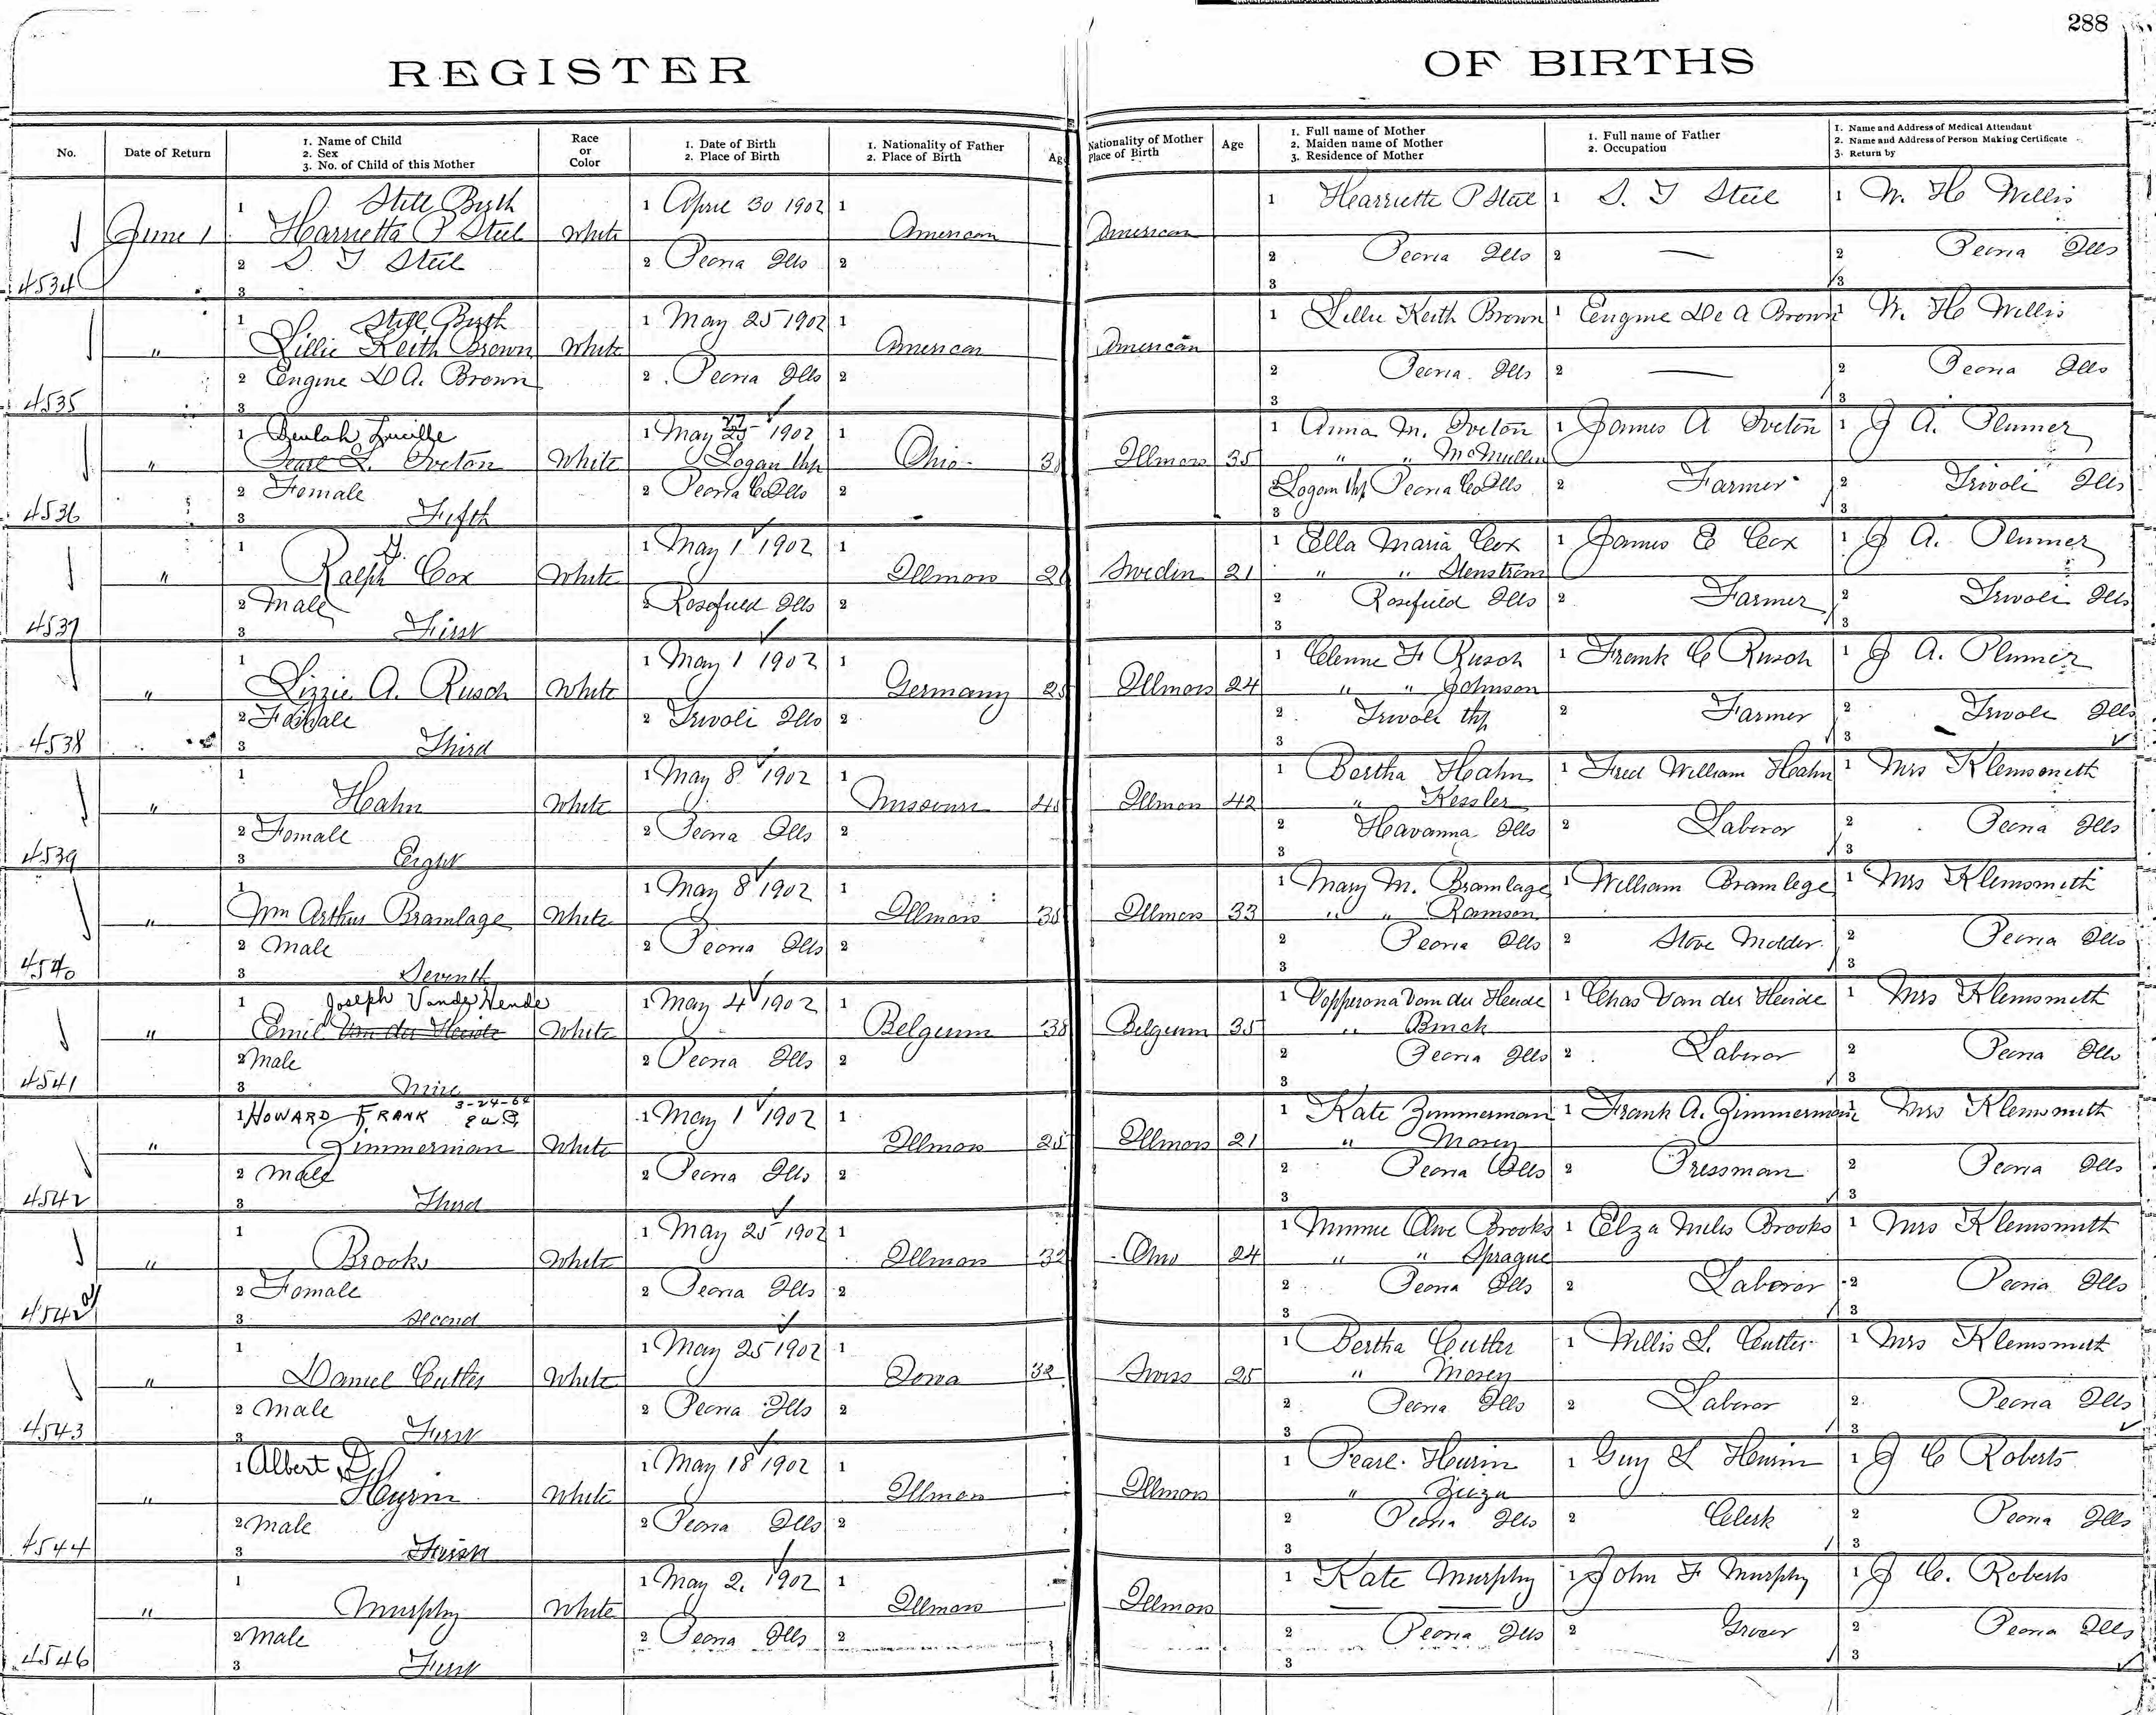 288
REGISTER OF BIRTHS
No. Date of Return 1. Name of Child 2. Sex 3. No. of Child of this Mother Race or Color 1. Date of Birth 2. Place of Birth 1. Nationality of Father 2. Place of Birth Age Nationality of Mother Place of Birth Age 1. Full name of Mother 2. Maiden name of Mother 3. Residence of Mother 1. Full name of Father 2. Occupation 1. Name and Address of Medical Attendant 2. Name and Address of Person Making Certificate 3. Return by
1 Still Birth 1 April 30 1902 1 1 Harriette P Steel 1 S. T Steel 1 W. H Willis
June 1 Harrietta P Steel White American American
2 S. T Steel 2 Peoria Ills 2 2 Peoria Ills 2 — 2 Peoria Ills
4534 3 3 3
1 Still Birth 1 May 25 1902 1 1 Lillie Keith Brown 1 Eugine De A Brown 1 W. H Willis
" Lillie Keith Brown White American American
2 Eugine D A. Brown 2 Peoria Ills 2 2 Peoria Ills 2 — 2 Peoria Ills
4535 3 3 3
1 Beulah Lucille 1 May 1902 1 1 Anna M. Oveton 1 James A Oveton 1 J A. Plumer
" Pearl L. Oveton White Logan thp Ohio 3 Illinois 35 " " McMullin
2 Female 2 Peoria Co Ills 2 2 Logan thp Peoria Co Ills 2 Farmer 2 Trivoli Ills
4536 3 Fifth 3 3
1 1 May 1 1902 1 1 Ella Maria Cox 1 James E Cox 1 J A. Plumer
" Ralph Cox White Illinois 2 Sweden 21 " " Stenstrom
2 Male 2 Rosefield Ills 2 2 Rosefield Ills 2 Farmer 2 Trivoli Ills
4537 3 First 3 3
1 1 May 1 1902 1 1 F Rusch 1 Frank C Rusch 1 J A. Plumer
" Lizzie A. Rusch White Germany 2 Illinois 24 " " Johnson
2 Female 2 Trivoli Ills 2 2 Trivoli thp 2 Farmer 2 Trivoli Ills
4538 3 Third 3 3
1 1 May 8 1902 1 1 Bertha Hahn 1 Fred William Hahn 1 Mrs Klemsmith
" Hahn White Missouri 4 Illinois 42 " Kessler
2 Female 2 Peoria Ills 2 2 Havanna Ills 2 Laboror 2 Peoria Ills
4539 3 Eight 3 3
1 1 May 8 1902 1 1 Mary M. Bramlage 1 William Bramlege 1 Mrs Klemsmith
" Wm Arthur Bramlage White Illinois 3 Illinois 33 " " Ramson
2 Male 2 Peoria Ills 2 2 Peoria Ills 2 Stove Molder 2 Peoria Ills
4540 3 Seventh 3 3
1 Joseph Vande Hende 1 May 4 1902 1 1 Van der Heide 1 Chas Van der Heide 1 Mrs Klemsmith
" Emil Van der Heide White Belgeum 38 Belgeum 35 " Binck
2 Male 2 Peoria Ills 2 2 Peoria Ills 2 Laboror 2 Peoria Ills
4541 3 Nine 3 3
1 HOWARD FRANK 3-24-64 1 May 1 1902 1 1 Kate Zimmerman 1 Frank A. Zimmerman 1 Mrs Klemsmith
" Zimmerman White Illinois 25 Illinois 21 " Mosey
2 Male 2 Peoria Ills 2 2 Peoria Ills 2 Pressman 2 Peoria Ills
4542 3 Third 3 3
1 1 May 25 1902 1 1 Minnie Olive Brooks 1 Elza Miles Brooks 1 Mrs Klemsmith
" Brooks White Illinois 32 Ohio 24 " " Sprague
2 Female 2 Peoria Ills 2 2 Peoria Ills 2 Laboror 2 Peoria Ills
4542 3 Second 3 3
1 1 May 25 1902 1 1 Bertha Cutler 1 Willis L. Cutler 1 Mrs Klemsmith
" Daniel Cutler White Iowa 32 Swiss 25 " Mosey
2 Male 2 Peoria Ills 2 2 Peoria Ills 2 Laboror 2 Peoria Ills
4543 3 First 3 3
1 Albert 1 May 18 1902 1 1 Pearl Heurin 1 Guy L Heurin 1 J C Roberts
" White Illinois Illinois "
2 Male 2 Peoria Ills 2 2 Peoria Ills 2 Clerk 2 Peoria Ills
4544 3 First 3 3
1 1 May 2, 1902 1 1 Kate Murphy 1 John F Murphy 1 J C. Roberts
" Murphy White Illinois Illinois
2 Male 2 Peoria Ills 2 2 Peoria Ills 2 Grocer 2 Peoria Ills
4546 3 First 3 3